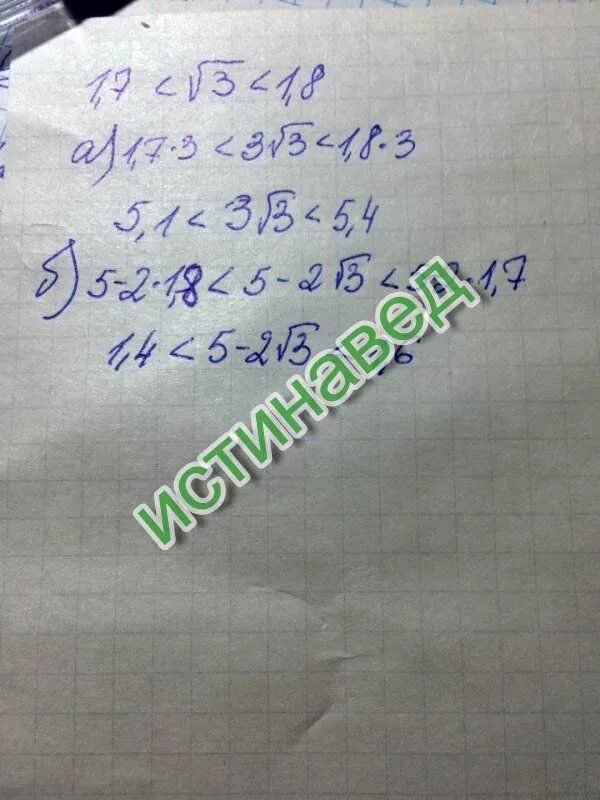 1,7 < √3 < 1,8
а) 1,7·3 < 3√3 < 1,8·3
5,1 < 3√3 < 5,4
б) 5-2·1,8 < 5-2√3 < ·1,7
1,4 < 5-2√3
истинавед